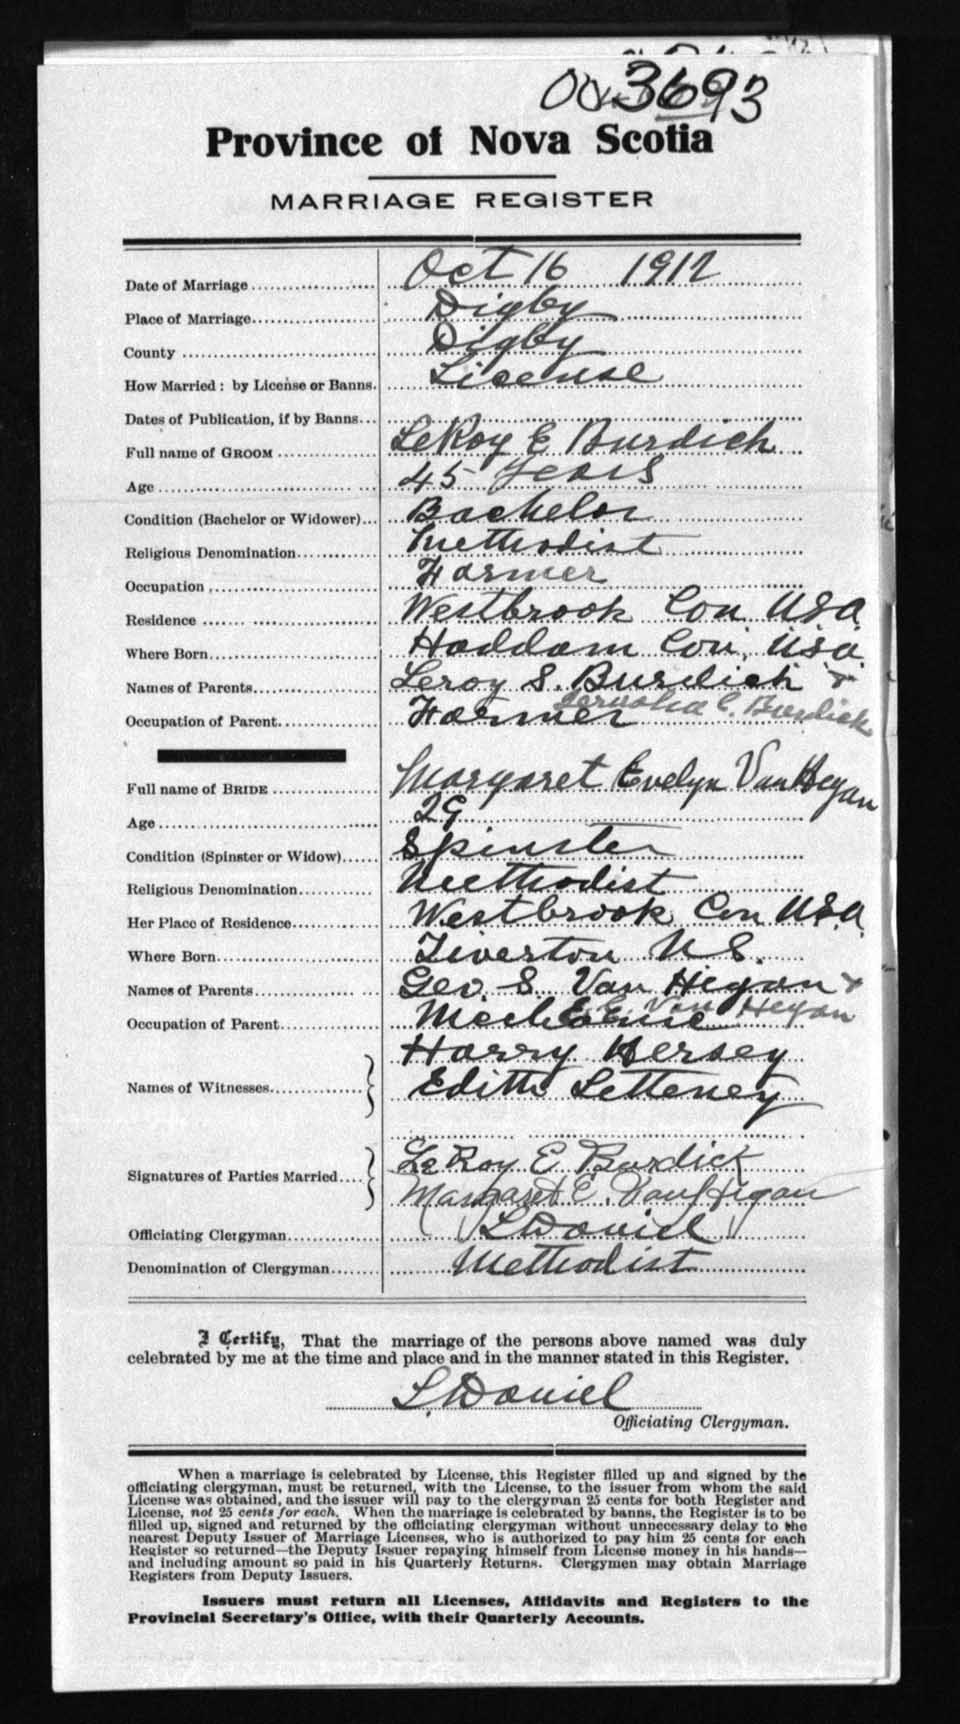 3693
Province of Nova Scotia
MARRIAGE REGISTER
Date of Marriage Oct 16 1912
Place of Marriage Digby
County Digby
How Married: by License or Banns. License
Dates of Publication, if by Banns
Full name of GROOM LeRoy E Burdick
Age 45 years
Condition (Bachelor or Widower) Bachelor
Religious Denomination Methodist
Occupation Farmer
Residence Westbrook Con USA
Where Born Haddam Con, USA
Names of Parents Leroy S. Burdick +
C. Burdick
Occupation of Parent Farmer
Full name of BRIDE Margaret Evelyn VanHegan
Age 29
Condition (Spinster or Widow) Spinster
Religious Denomination Methodist
Her Place of Residence Westbrook Con USA.
Where Born Tiverton N S.
Names of Parents Geo. S. Van Hegan +
E. E. Van Hegan
Occupation of Parent Mechanic
Names of Witnesses Harry Hersey
Edith Letteney
Signatures of Parties Married LeRoy E Burdick
Margaret E. VanHegan
Officiating Clergyman L Daniel
Denomination of Clergyman Methodist
I Certify, That the marriage of the persons above named was duly
celebrated by me at the time and place and in the manner stated in this Register.
L. Daniel
Officiating Clergyman.
When a marriage is celebrated by License, this Register filled up and signed by the
officiating clergyman, must be returned, with the License, to the issuer from whom the said
License was obtained, and the issuer will pay to the clergyman 25 cents for both Register and
License, not 25 cents for each. When the marriage is celebrated by banns, the Register is to be
filled up, signed and returned by the officiating clergyman without unnecessary delay to the
nearest Deputy Issuer of Marriage Licenses, who is authorized to pay him 25 cents for each
Register so returned—the Deputy Issuer repaying himself from License money in his hands—
and including amount so paid in his Quarterly Returns. Clergymen may obtain Marriage
Registers from Deputy Issuers.
Issuers must return all Licenses, Affidavits and Registers to the
Provincial Secretary's Office, with their Quarterly Accounts.